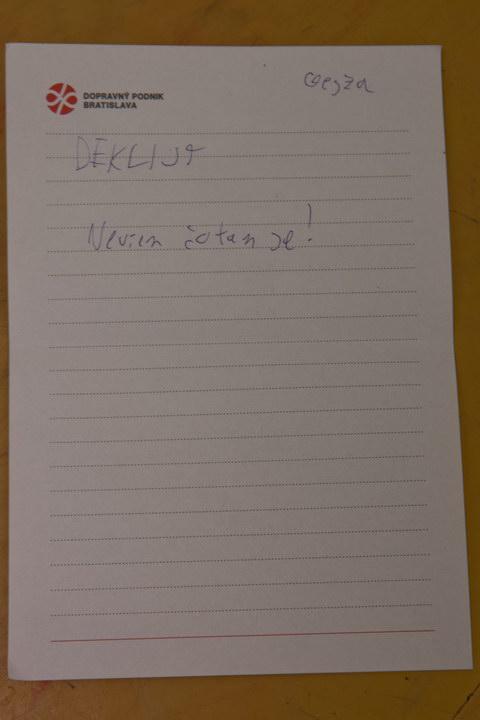 Gejza
DOPRAVNÝ PODNIK
BRATISLAVA
Neviem čo tam je!